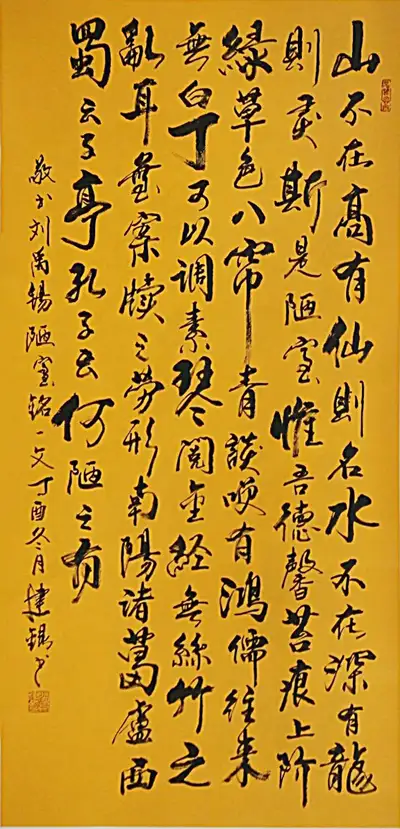 山不在高有仙則名水不在深有龍
則灵斯是陋室惟吾德馨苔痕上阶
緑草色入帘青談咲有鴻儒往来
無白丁可以调素琴閲金経無絲竹之
亂耳無案牍之劳形南陽诸葛廬西
蜀云子亭孔子云何陋之有
敬书刘禹锡陋室铭一文丁酉冬月建书